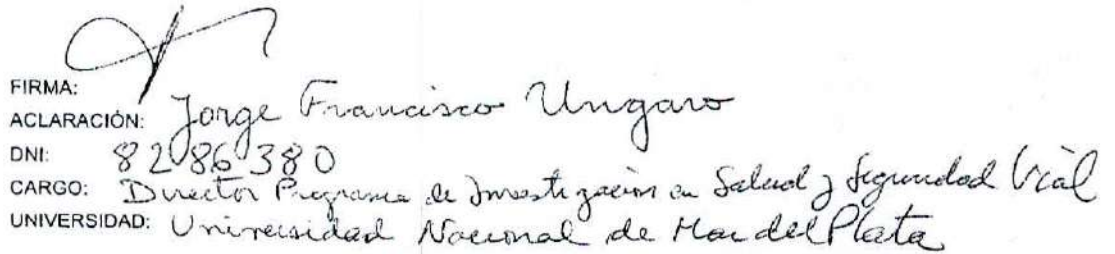 FIRMA:
ACLARACIÓN: Jorge Francisco Ungaro
DNI: 8286380
CARGO: Director Programa de Investigación en Salud y Seguridad Vial
UNIVERSIDAD: Universidad Nacional de Mar del Plata